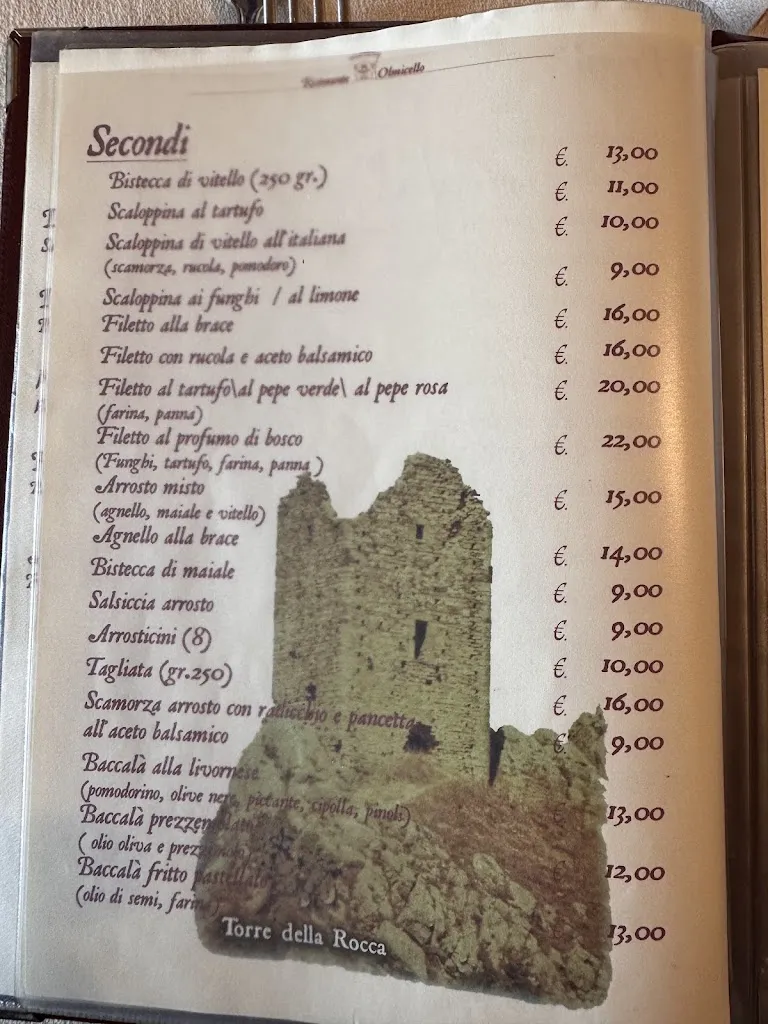 Ristorante Olmicello
Secondi
Bistecca di vitello (250 gr.) €. 13,00
Scaloppina al tartufo €. 11,00
Scaloppina di vitello all'italiana €. 10,00
(scamorza, rucola, pomodoro)
Scaloppina ai funghi / al limone €. 9,00
Filetto alla brace €. 16,00
Filetto con rucola e aceto balsamico €. 16,00
Filetto al tartufo\al pepe verde\ al pepe rosa €. 20,00
(farina, panna)
Filetto al profumo di bosco €. 22,00
(Funghi, tartufo, farina, panna )
Arrosto misto €. 15,00
(agnello, maiale e vitello)
Agnello alla brace €. 14,00
Bistecca di maiale €. 9,00
Salsiccia arrosto €. 9,00
Arrosticini (8) €. 10,00
Tagliata (gr.250) €. 16,00
Scamorza arrosto con radicchio e pancetta
all'aceto balsamico €. 9,00
Baccalà alla livornese €. 13,00
(pomodorino, olive nere, piccante, cipolla, pinoli)
Baccalà prezzemolato 12,00
( olio oliva e prezzemolo
Baccalà fritto pastellato 13,00
(olio di semi, farina)
Torre della Rocca